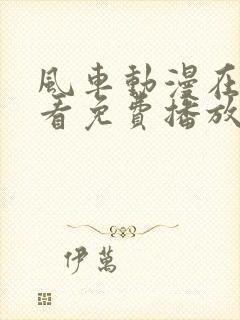 風車動漫在
看免費播放
伊萬